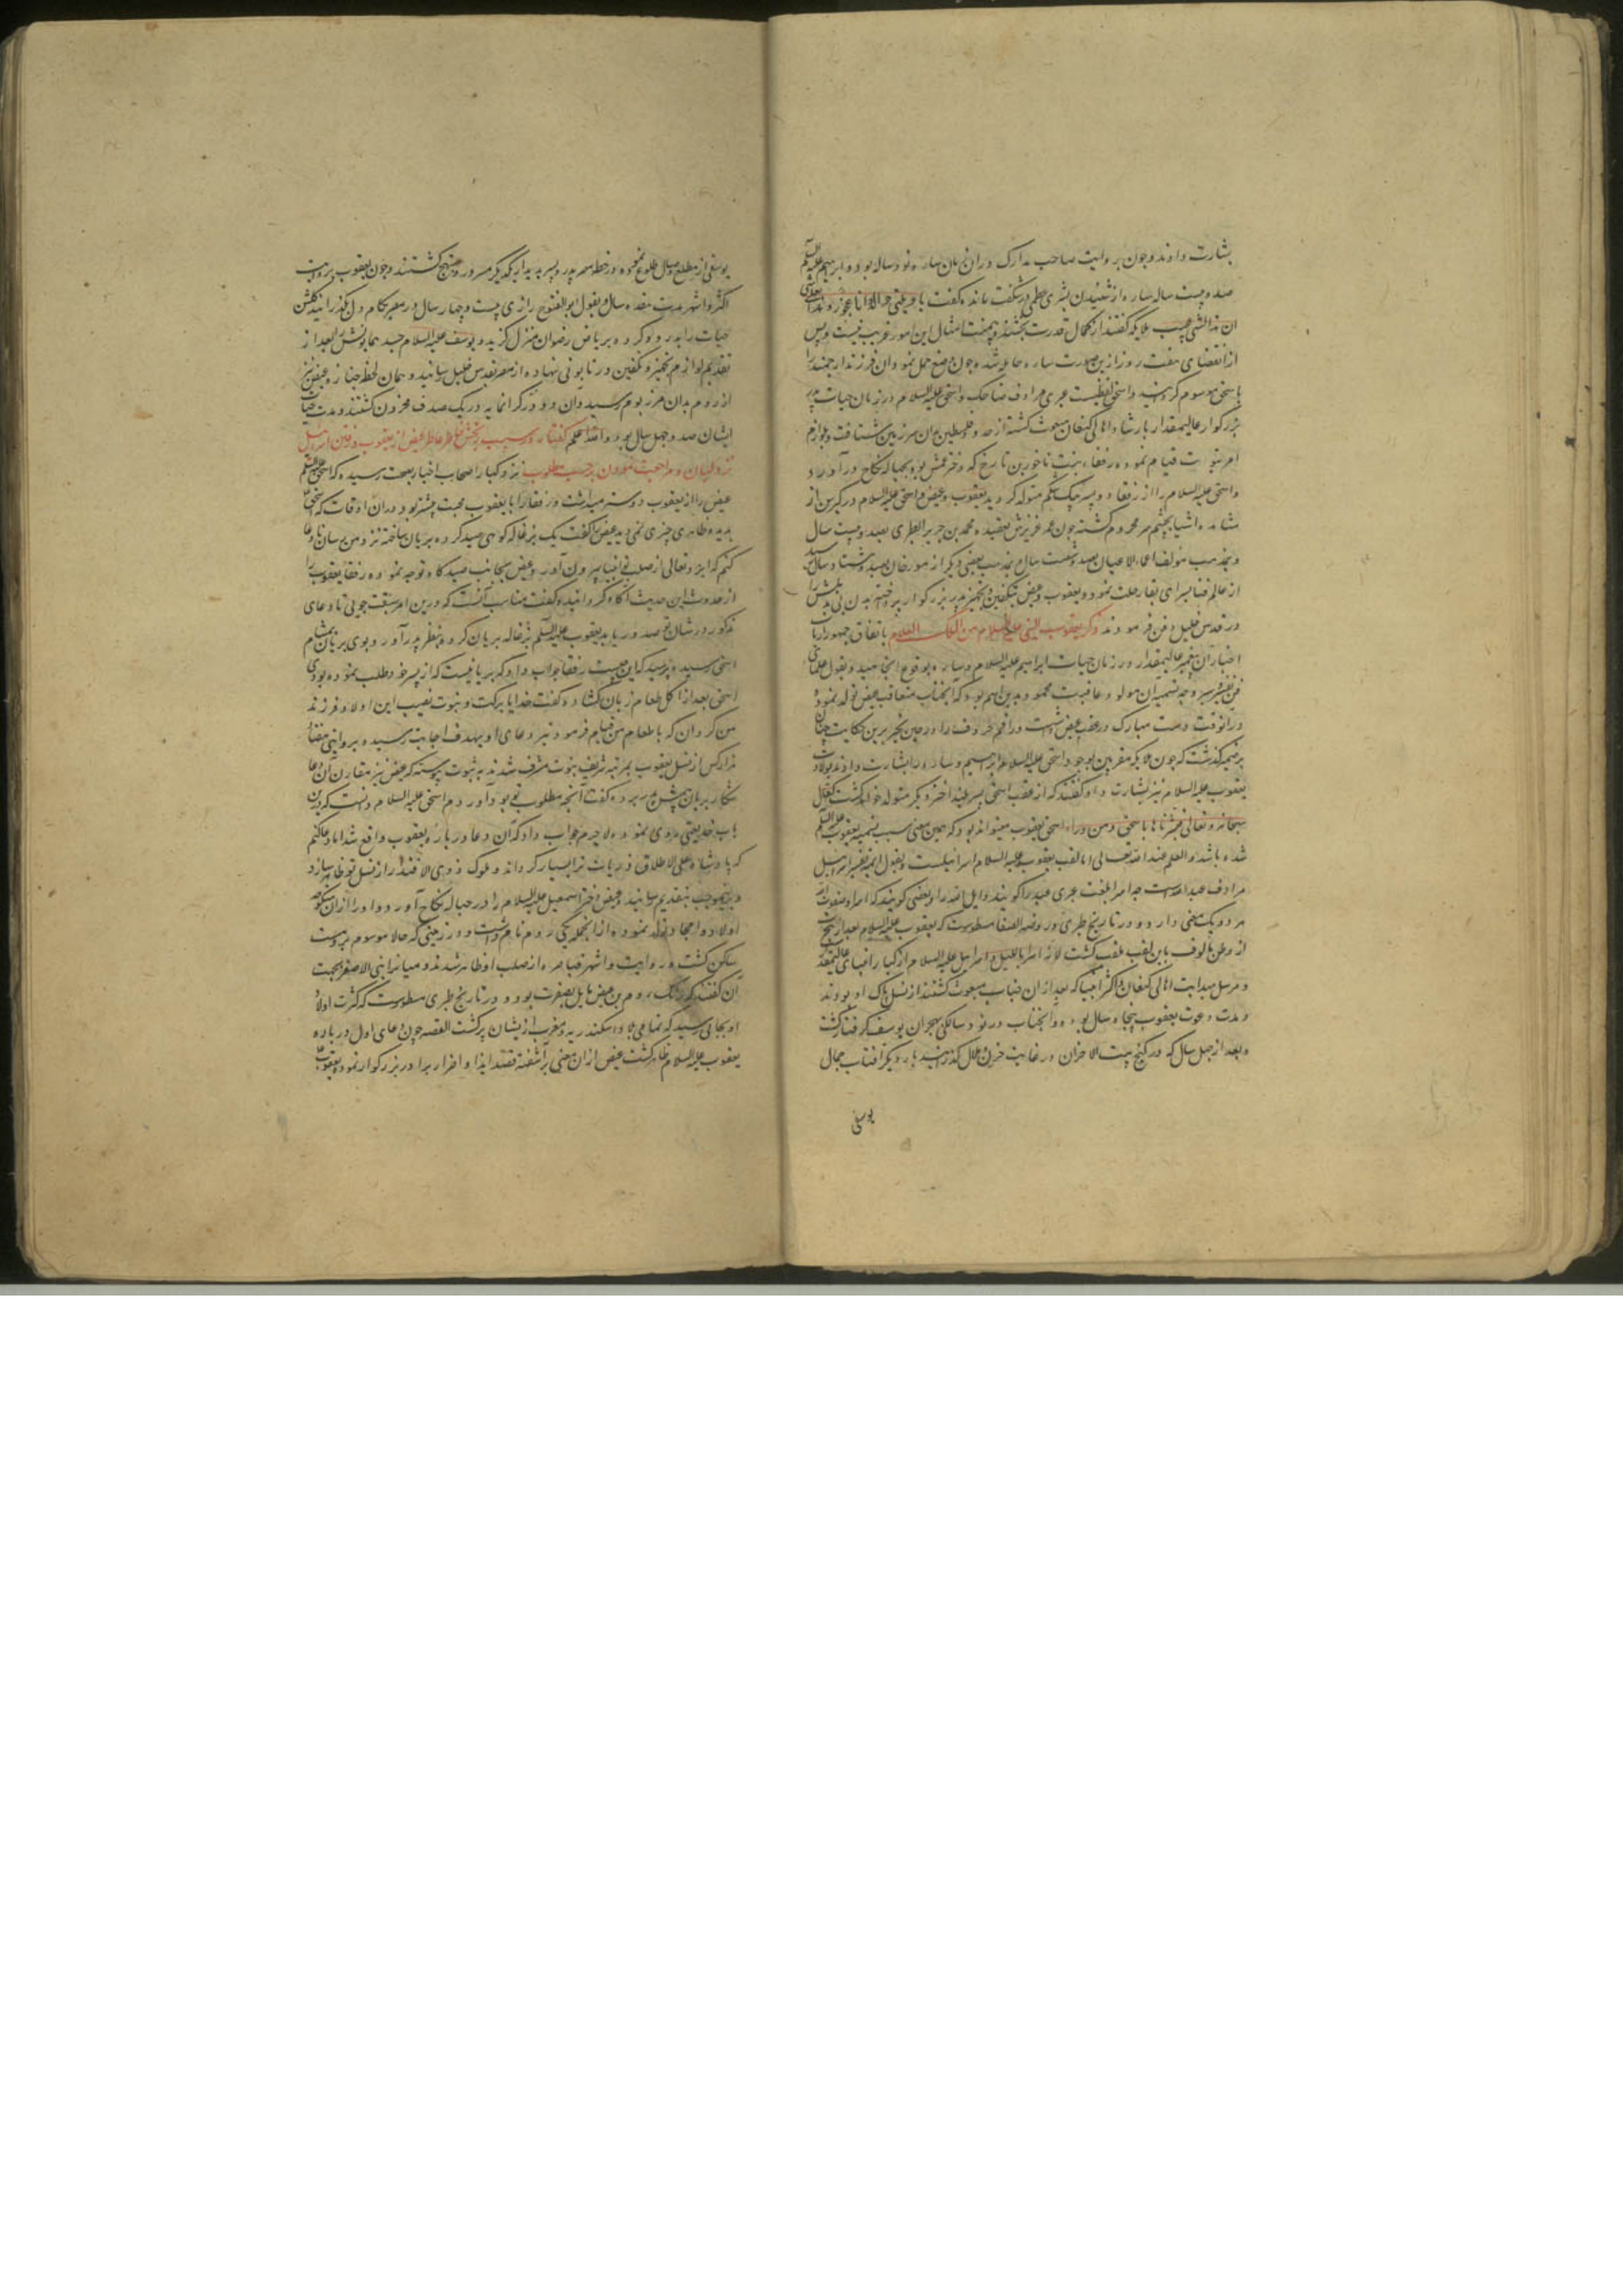 بشارت دادند و چون بروایت صاحب مدارک دران زمان ساره نود ساله بود و ابرهیم علیه السلم
صد و بیست ساله ساره از شنیدن بشری عظمی در شگفت مانده گفت یا ویلتی ءالد وانا عجوز وهذا بعلی
ان هذا لشی عجیب ملایکه گفتند از کمال قدرت امثال این امور غریب نیست و پس
از انقضای هفت روز ازین صورت ساره حامله شده چون وضع حمل نمود ان فرزند ارجمند را
باسحق موسوم گردانید و اسحق لفظیست عبری مرادف ضاحک و اسحق علیه السلام در زمان حیات پدر
بزرگوار عالیمقدار بارشاد اهالی کنعان مبعوث گشته از حدود فلسطین بدان سرزمین شتافت و بلوازم
امر نبوت قیام نموده رفقاء بنت ناخور بن تارخ که دختر عمش بود بحباله نکاح در آورد
و اسحق علیه السلام را از رفقا دو پسر بیک شکم متولد گردید یعقوب و عیص و اسحق علیه السلام در کبر سن از
مشاهده اشیا بچشم سر محروم گشته چون عمر عزیزش بعقیده محمد بن جریر الطبری بصد و بیست سال
و بمذهب مولف بصد و شصت سال و بمذهب بعضی دیگر از مورخان بصد و هشتاد سال رسید
از عالم فنا بسرای بقا رحلت نمود و یعقوب و عیص بتکفین و تجهیز پدر بزرگوار پرداخته بدن بی بدلش را
در قدس خلیل دفن فرمودند ذکر یعقوب النبی علیه السلام من الملک العلام باتفاق جمهور ارباب
اخبار آن پیغمبر عالیمقدار در زمان حیات ابراهیم علیه السلام و ساره بوقوع انجامید و بقول علمای
فن سیر وجه تسمیه ان مولود عاقبت محمود بدین اسم بود که انجناب متعاقب عیص تولد نموده
در انوقت دست مبارک در عقب عیص داشت و راقم حروف را در حین تحریر این حکایت چنان
بر ضمیر گذشت که چون ملایکه مقربین بوجود اسحق علیه السلام ابراهیم و ساره را بشارت دادند بولادت
یعقوب علیه السلام نیز بشارت داده گفتند که از عقب اسحق پسر فرخنده اختر دیگر متولد خواهد گشت کما قال
سبحانه و تعالی فبشرناها باسحق ومن وراء اسحق یعقوب میتواند بود که همین معنی سبب تسمیه یعقوب علیه السلم
شده باشد و العلم عند الله تعالی اما لقب یعقوب علیه السلام اسرائیلست و بقول ائمه تفسیر اسرائیل
مرادف عبد الله است چه اسرا بلغت عبری عبد را گویند و ایل الله را و بعضی گویند که اسرا و صفوت
هر دو یک معنی دارد و در تاریخ طبری و روضه الصفا مسطورست که یعقوب علیه السلام بعد از هجرت
از وطن مالوف باین لقب ملقب گشت لانه اسرا باللیل و اسرائیل علیه السلام از کبار انبیای عالیمقدار
و مرسل بهدایت اهالی کنعان و اکثر انبیا که بعد از ان جناب مبعوث گشتند از نسل پاک او بودند
و مدت دعوت یعقوب پنجاه سال بود و انجناب در نود سالگی بهجران یوسف گرفتار گشت
و بعد از چهل سال که در کنج بیت الاحزان در غایت حزن و ملال گذرانید بار دیگر آفتاب جمال
یوسفی
یوسفی از مطلع وصال طلوع نموده در خطه مصر پدر و پسر بدیدار یکدیگر مسرور و مبتهج گشتند و چون یعقوب بروایت
اکثر و اشهر مدت هفده سال و بقول ابو الفتوح رازی بیست و چهار سال در مصر بکام دل بگذرانید گلشن
حیات را بدرود کرده بریاض رضوان منزل گزید و یوسف علیه السلام جسد همایونش را بعد از
تقدیم لوازم تجهیز و تکفین در تابوتی نهاده از مصر بقدس خلیل رسانید و همان لحظه جنازه عیص نیز
از روم بدان مرز بوم رسید و آن دو در گرانمایه در یک صدف مخزون گشتند و مدت حیات
ایشان صد و چهل سال بود و الله اعلم گفتار در سبب رنجش خاطر عاطر عیص از یعقوب و رفتن اسرائیل
نزد لیان و مراجعت نمودن بر حسب مطلوب نزد کبار اصحاب اخبار بصحت رسیده که اسحق علیه السلم
عیص را از یعقوب دوستر میداشت و رفقا را با یعقوب محبت بیشتر بود و در ان اوقات که اسحق
بدیده ظاهری چیزی نمی دید عیص را گفت یک بزغاله کوهی صید کرده بریان ساخته نزد من رسان تا دعا
کنم که ایزد تعالی از صلب تو انبیا بیرون آورد و عیص بجانب صیدگاه توجه نموده رفقا یعقوب را
از حدوث این حدیث آگاه گردانیده گفت مناسب آنست که درین امر سبقت جویی تا دعای
مذکور در شان تو صدور یابد یعقوب علیه السلم بزغاله بریان کرده بنظر پدر آورد و بوی بریان بمشام
اسحق رسیده پرسید که این چیست رفقا جواب داد که بریانیست که از پسر خود طلب نموده بودی
اسحق بعد از اکل طعام زبان گشاده گفت خدایا برکت و نبوت نصیب این اولاد و فرزند
من گردان که باطعام من قیام فرمود تیر دعای او بهدف اجابت رسیده بروایتی هفتاد
هزار کس از نسل یعقوب بمرتبه شریف نبوت مشرف شدند به ثبوت پیوسته که عیص نیز مقارن آن دعا
شکار بریان پیش پدر برده گفت آنچه مطلوب تو بود آوردم اسحق علیه السلام دانست که درین
باب خدیعتی روی نموده لا جرم جواب داد که آن دعا در باره یعقوب واقع شد اما دعا کنم
که پادشاه علی الاطلاق ذریات ترا بسیار گرداند و ملوک ذوی الاقتدار از نسل تو ظاهر سازد
و بدینموجب بتقدیم رسانید و عیص دختر اسمعیل علیه السلام را در حباله نکاح آورد و او را از ان منکوحه
اولاد و امجاد تولد نموده از انجمله یکی روم نام داشت و در زمینی که حالا موسوم بروم است
ساکن گشت و روایت و اشهر قیاصره از صلب او ظاهر شدند و میانه ابنی الاصفر بجهت
آن گفتند که رنگ روم بن عیص مایل بصفرت بود و در تاریخ طبری مسطورست که کثرت اولاد
او بجایی رسید که تمامی بلاد اسکندریه و مغرب از یشان پر گشت القصه چون دعای اول در باره
یعقوب علیه السلام ظاهر گشت عیص از ان معنی بر آشفته قصد ایذا و اضرار برادر بزرگوار نمود یعقوب